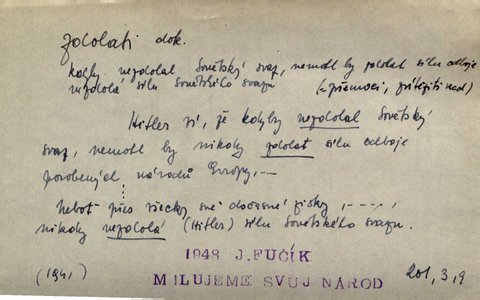 zdolati dok.
kdyby nezdolal Sovětský svaz, nemohl by zdolat sílu odboje
nezdolá sílu sovětského svazu (=přemoci, zvítěziti nad)
Hitler ví, že kdyby nezdolal Sovětský
svaz, nemohl by nikdy zdolat sílu odboje
porobených národů Evropy, --
neboť přes všecky své dočasné zisky, ---,
nikdy nezdolá (Hitler) sílu Sovětského svazu.
1948 J.FUČÍK
(1941) MILUJEME SVŮJ NÁROD 201,3,9